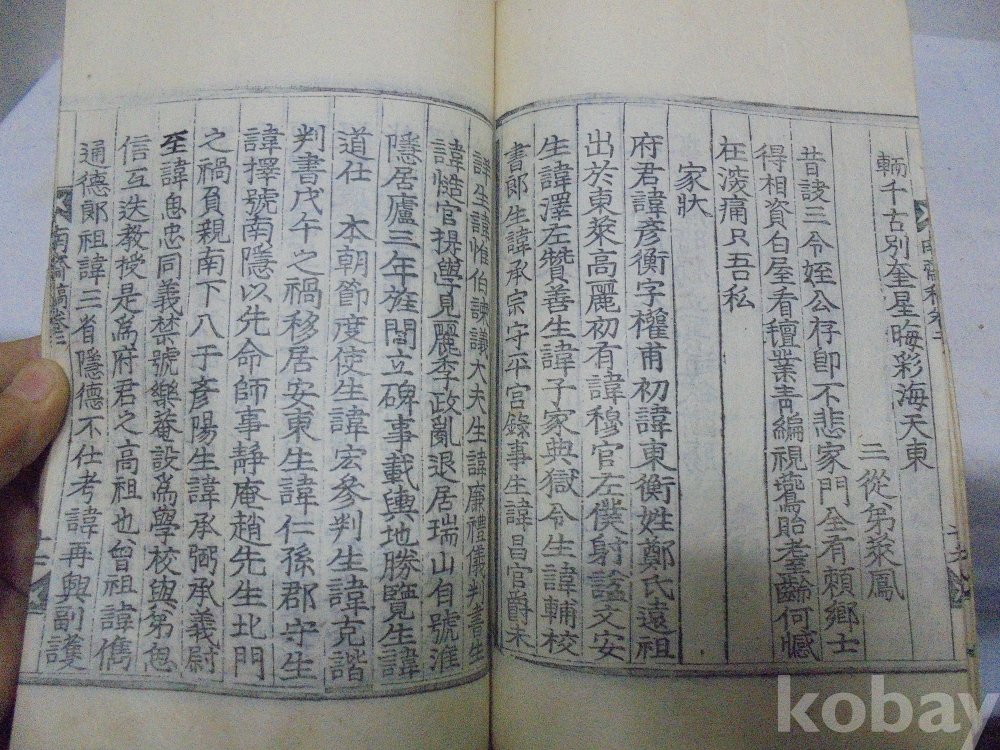 輀千古別奎星晦彩海天東
三從弟萊鳳
昔誦三令姪公存卽不悲家門全有賴鄉士
得相資白屋看穜業靑編視鸎貽耋齡何憾
在淚痛只吾私
家狀
府君諱彥衡字權甫初諱東衡姓鄭氏遠祖
出於東萊高麗初有諱穆官左僕射諡文安
生諱澤左贊善生諱子家典獄令生諱輔校
書郞生諱承宗守平官錄事生諱昌官爵未
詳生諱惟伯諫議大夫生諱廉禮儀判書生
諱愭官提學見麗季政亂退居瑞山自號淮
隱居廬三年旌閭立碑事載輿地勝覽生諱
道仕 本朝節度使生諱宏參判生諱克諧
判書戊午之禍移居安東生諱仁孫郡守生
諱擇號南隱以先命師事靜庵趙先生北門
之禍負親南下八于彥陽生諱承弼承義尉
至諱 忠同義禁號樂菴設爲學校與弟
信互迭敎授是爲府君之高祖也曾祖諱儁
通德郞祖諱三省隱德不仕考諱再興副護
南齋稿卷三
kobay